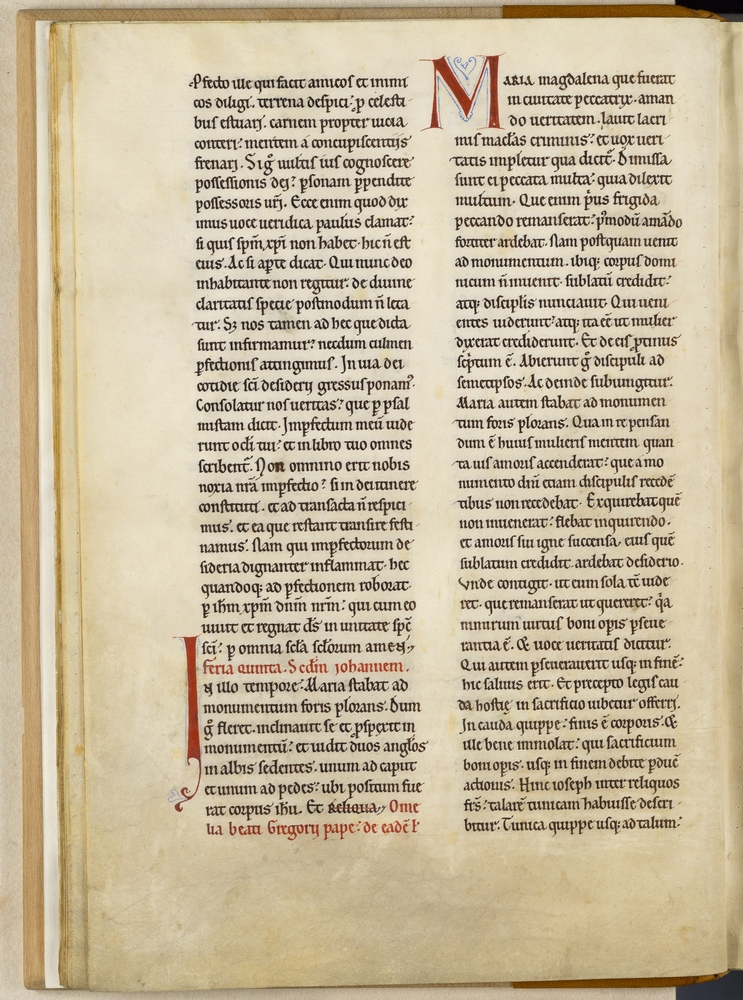 Pfecto ille qui facit amicos et inimi
cos diligi. terrena despici? p̱ celesti
bus estuari. carnem propter uicia
conteri? mentem a concupiscentiis
frenari. Si g̊ uultis ius cognoscere
possessionis dei? p̱sonam p̱pendite
possessoris urī. Ecce enim quod dix
imus uoce ueridica paulus clamat?
si quis sp̄m xp̄i non habet. hic n̄ est
eius. Ac si ap̱te dicat. Qui nunc deo
inhabitante non regitur. de diuine
claritatis specie postmodum n̄ leta
tur. Sꝫ nos tamen ad hec que dicta
sunt infirmamur? necdum culmen
p̱fectionis attingimus. In uia dei
cotidie sc̄i desiderij gressus ponam᷒.
Consolatur nos ueritas? que p̱ psal
mistam dicit. Imp̱fectum meū uide
runt oc̄li tui? et in libro tuo omnes
scribent᷒. Non omnino erit nobis
noxia nr̄a imp̱fectio? si in dei itinere
constituti. et ad transacta n̄ respici
mus. et ea que restant transire festi
namus. Nam qui imp̱fectorum de
sideria dignanter inflammat. hec
quandoqꝫ ad p̱fectionem roborat.
p̱ ihm̄ xp̄m dn̄m nrm̄? qui cum eo
uiuit et regnat d̄s in unitate sp̄c
sc̄i? p̱ omnia sc̄la sc̄lorum amen.
Feria quinta. Scd̄m iohannem.
In illo tempore? Maria stabat ad
monumentum foris plorans. Dum
g̊ fleret. inclinauit se et ꝓsp̱exit in
monumentū? et uidit duos angl̄os
in albis sedentes. unum ad caput
et unum ad pedes? ubi positum fue
rat corpus ihū. Et reliqua. Ome
lia beati Gregorij pape? de eadē l̄
Maria magdalena que fuerat
in ciuitate peccatrix. aman
do ueritatem. lauit lacri
mis maclās criminis? et uox ueri
tatis impletur qua dicit᷒. Dimissa
sunt ei peccata multa? quia dilexit
multum. Que enim p̓us frigida
peccando remanserat? p̱modū amādo
fortiter ardebat. Nam postquam uenit
ad monumentum. ibiqꝫ corpus domi
nicum n̄ inuenit. sublatū credidit?
atqꝫ discip̄lis nunciauit. Qui ueni
entes uiderunt? atqꝫ ita eē ut mulier
dixerat crediderunt. Et de eis ꝓtinus
sc̓ptum ē. Abierunt g̊ discipuli ad
semetipsos. Ac deinde subiungitur.
Maria autem stabat ad monumen
tum foris plorans. Qua in re pensan
dum ē huius mulieris mentem quan
ta uis amoris accenderat? que a mo
numento dnī etiam discipulis recedē
tibus non recedebat. Exquirebat quē
non inuenerat? flebat inquirendo.
et amoris sui igne succensa. eius quē
sublatum credidit. ardebat desiderio.
Vnde contigit. ut eum sola tc̄ uide
ret. que remanserat ut quereret? q̓a
nimirum uirtus boni op̱is p̱seue
rantia ē. Et uoce ueritatis dicitur.
Qui autem p̱seuerauerit usqꝫ in finē?
hic saluus erit. Et precepto legis cau
da hostie in sacrificio iubetur offerri.
In cauda quippe? finis ē corporis. Et
ille bene immolat? qui sacrificium
boni op̱is. usqꝫ in finem debite p̱duc̄
actionis. Hinc ioseph inter reliquos
frs̄? talarē tunicam habuisse descri
bitur. Tunica quippe usqꝫ ad talum?